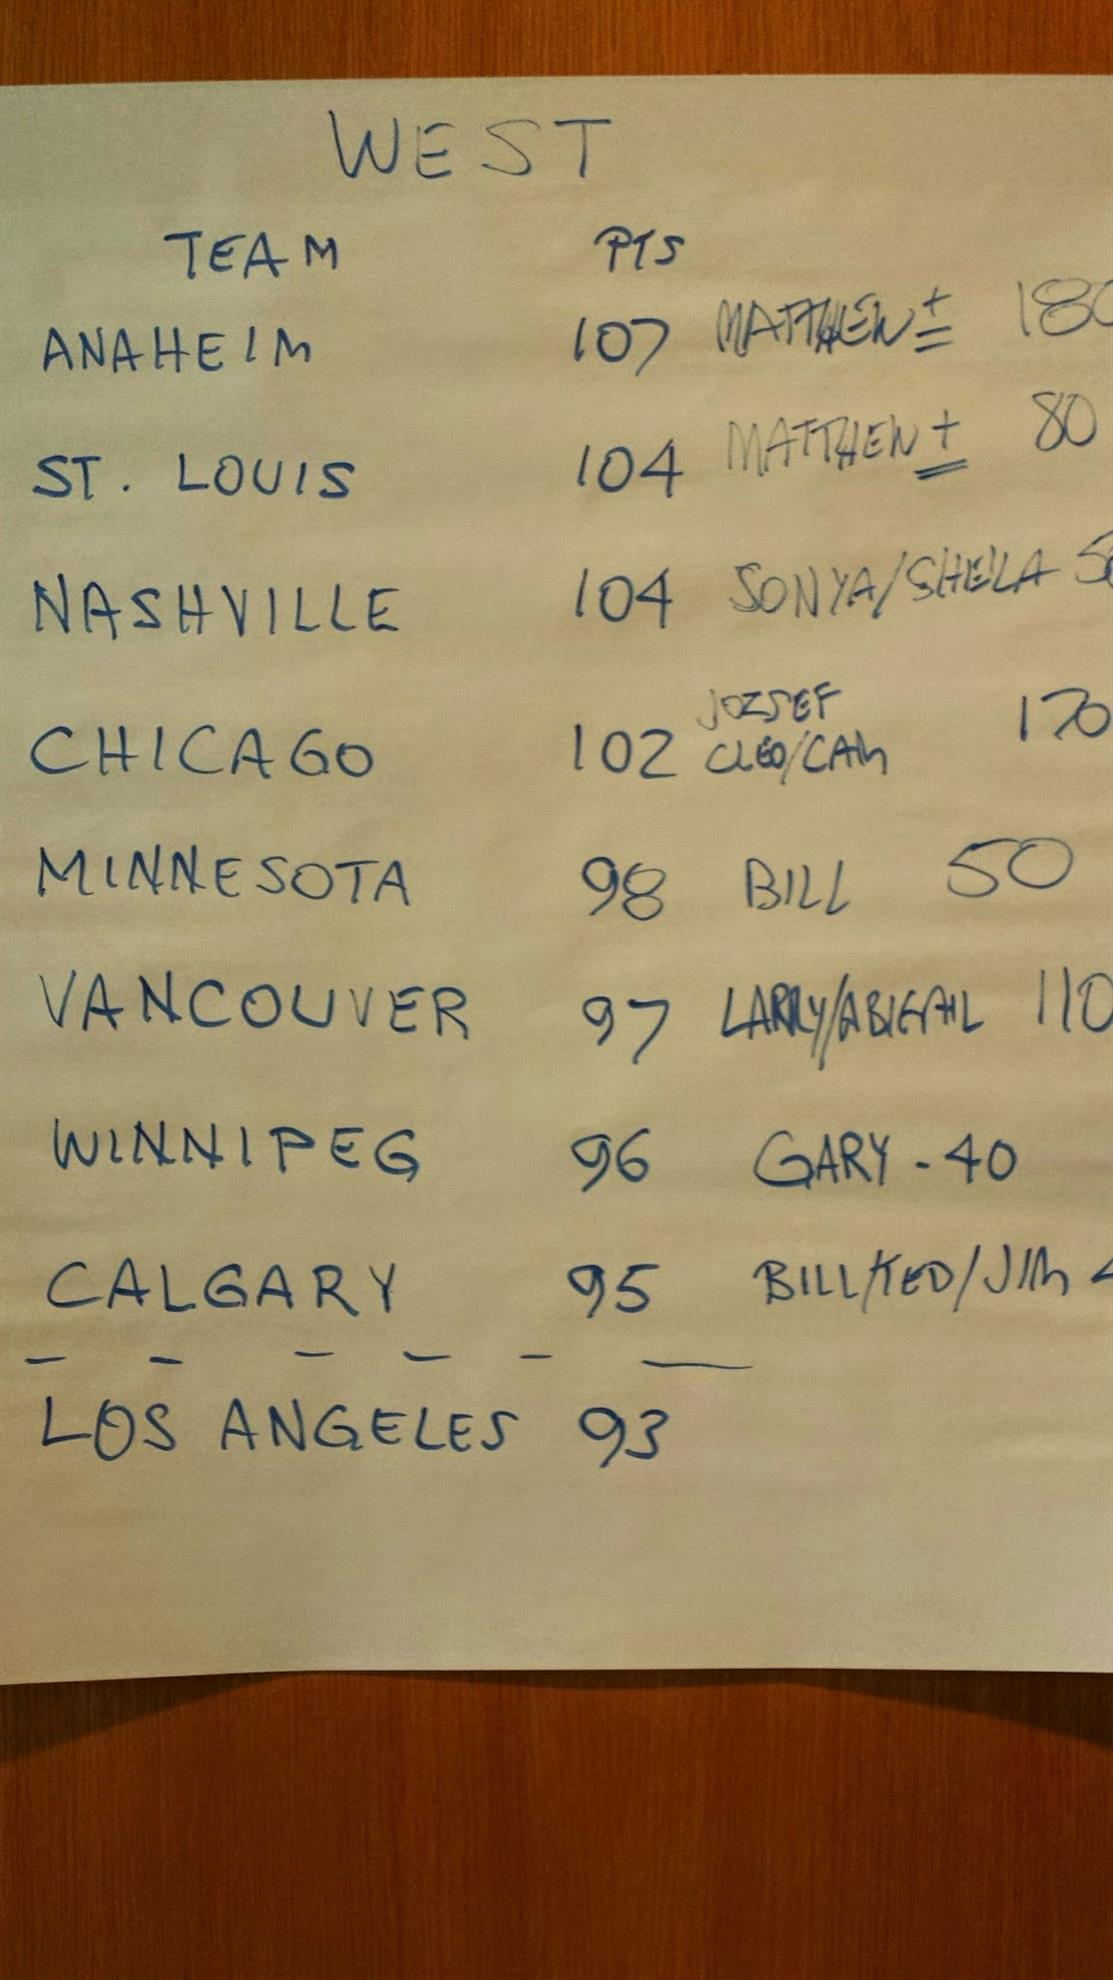 WEST
TEAM PTS
ANAHEIM 107 MATTHEW ± 180
ST. LOUIS 104 MATTHEW ± 80
NASHVILLE 104 SONYA/SHEILA
JOZSEF
CHICAGO 102 CLEO/CAM 170
MINNESOTA 98 BILL 50
VANCOUVER 97 LARRY/ABIGAIL 110
WINNIPEG 96 GARY - 40
CALGARY 95 BILL/TED/JIM
LOS ANGELES 93